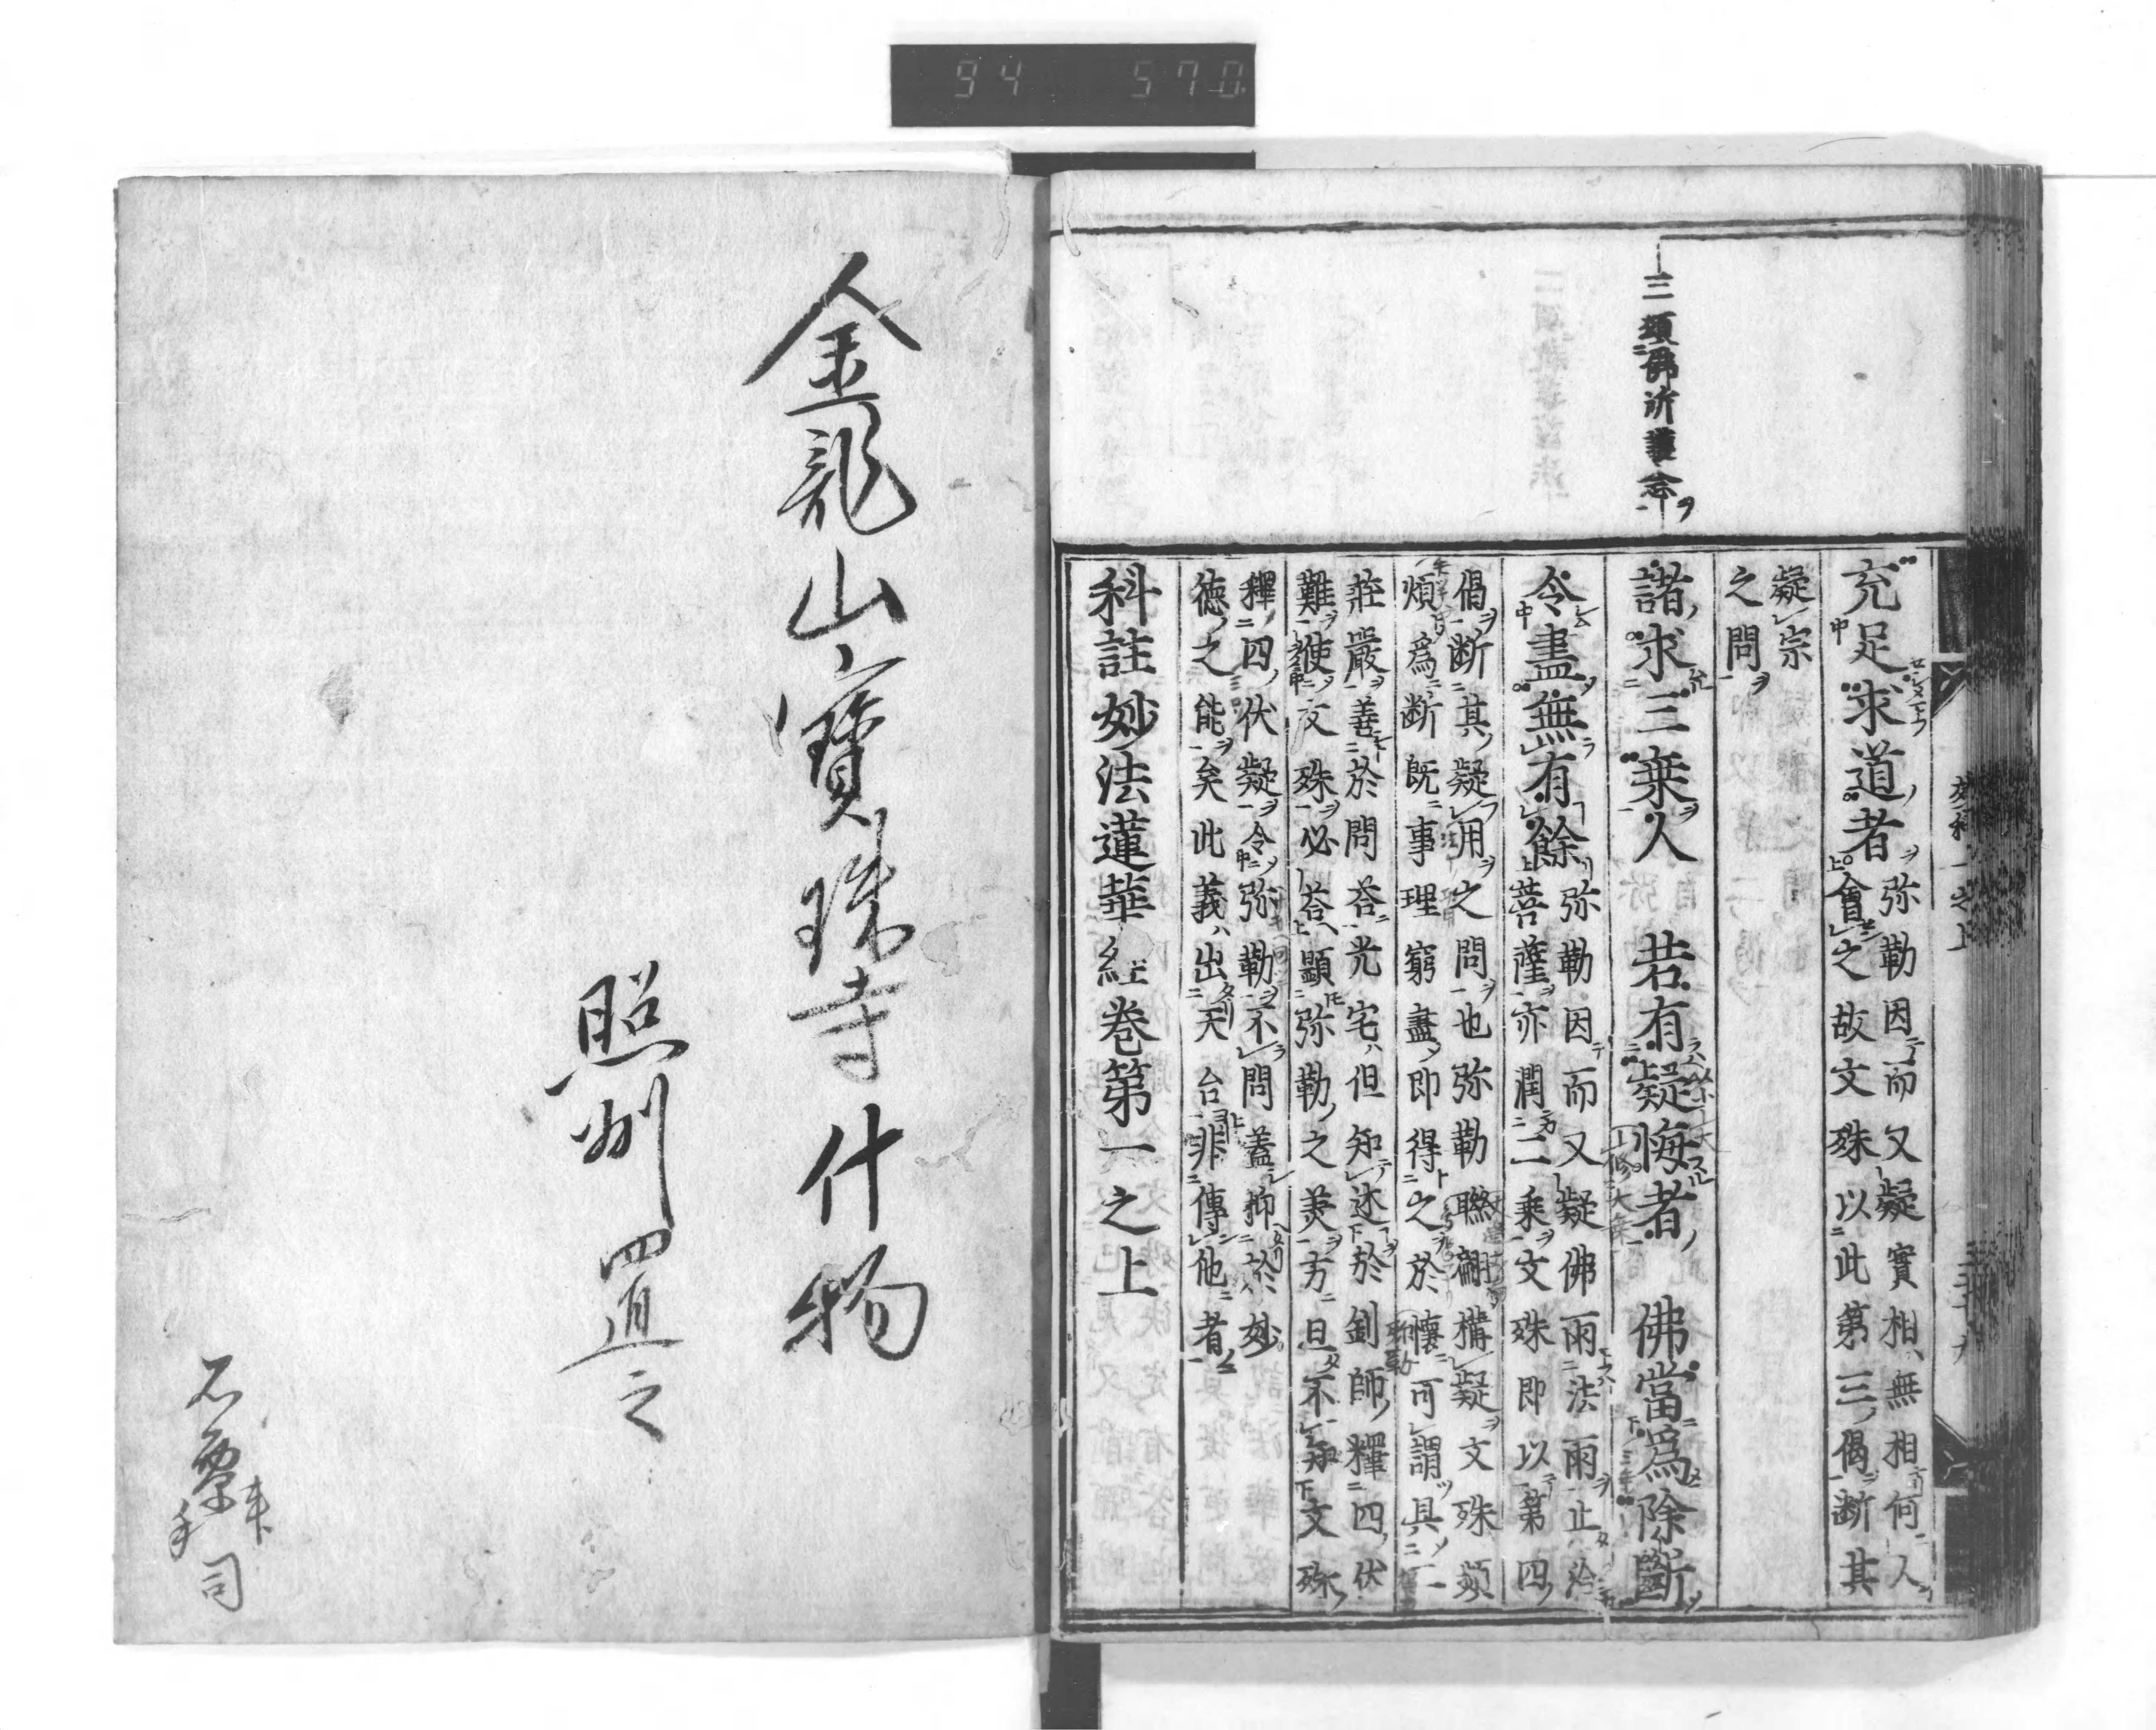 94 570
三類佛所護念
充足求道者
弥勒因而又疑實相無相何人
會之故文殊以此第三偈断其
疑宗
之問
諸求三乗人 若有疑悔者 佛當爲除斷
令盡無有餘
弥勒因而又疑佛雨法雨止洽
菩薩亦潤二乗文殊即以第四
偈断其疑用之問也弥勒聯翩構疑文殊頻
煩爲断既事理窮盡即得之於懐可謂具二
莊嚴善於問荅光宅但知述於釗師釋四伏
難使文殊必荅顯弥勒之美方旦不知文殊
釋四伏疑令弥勒不問蓋抑於妙
徳之能矣此義出天台非傳他者
科註妙法蓮華経巻第一之上
金龍山寳珠寺什物
照州置之
司